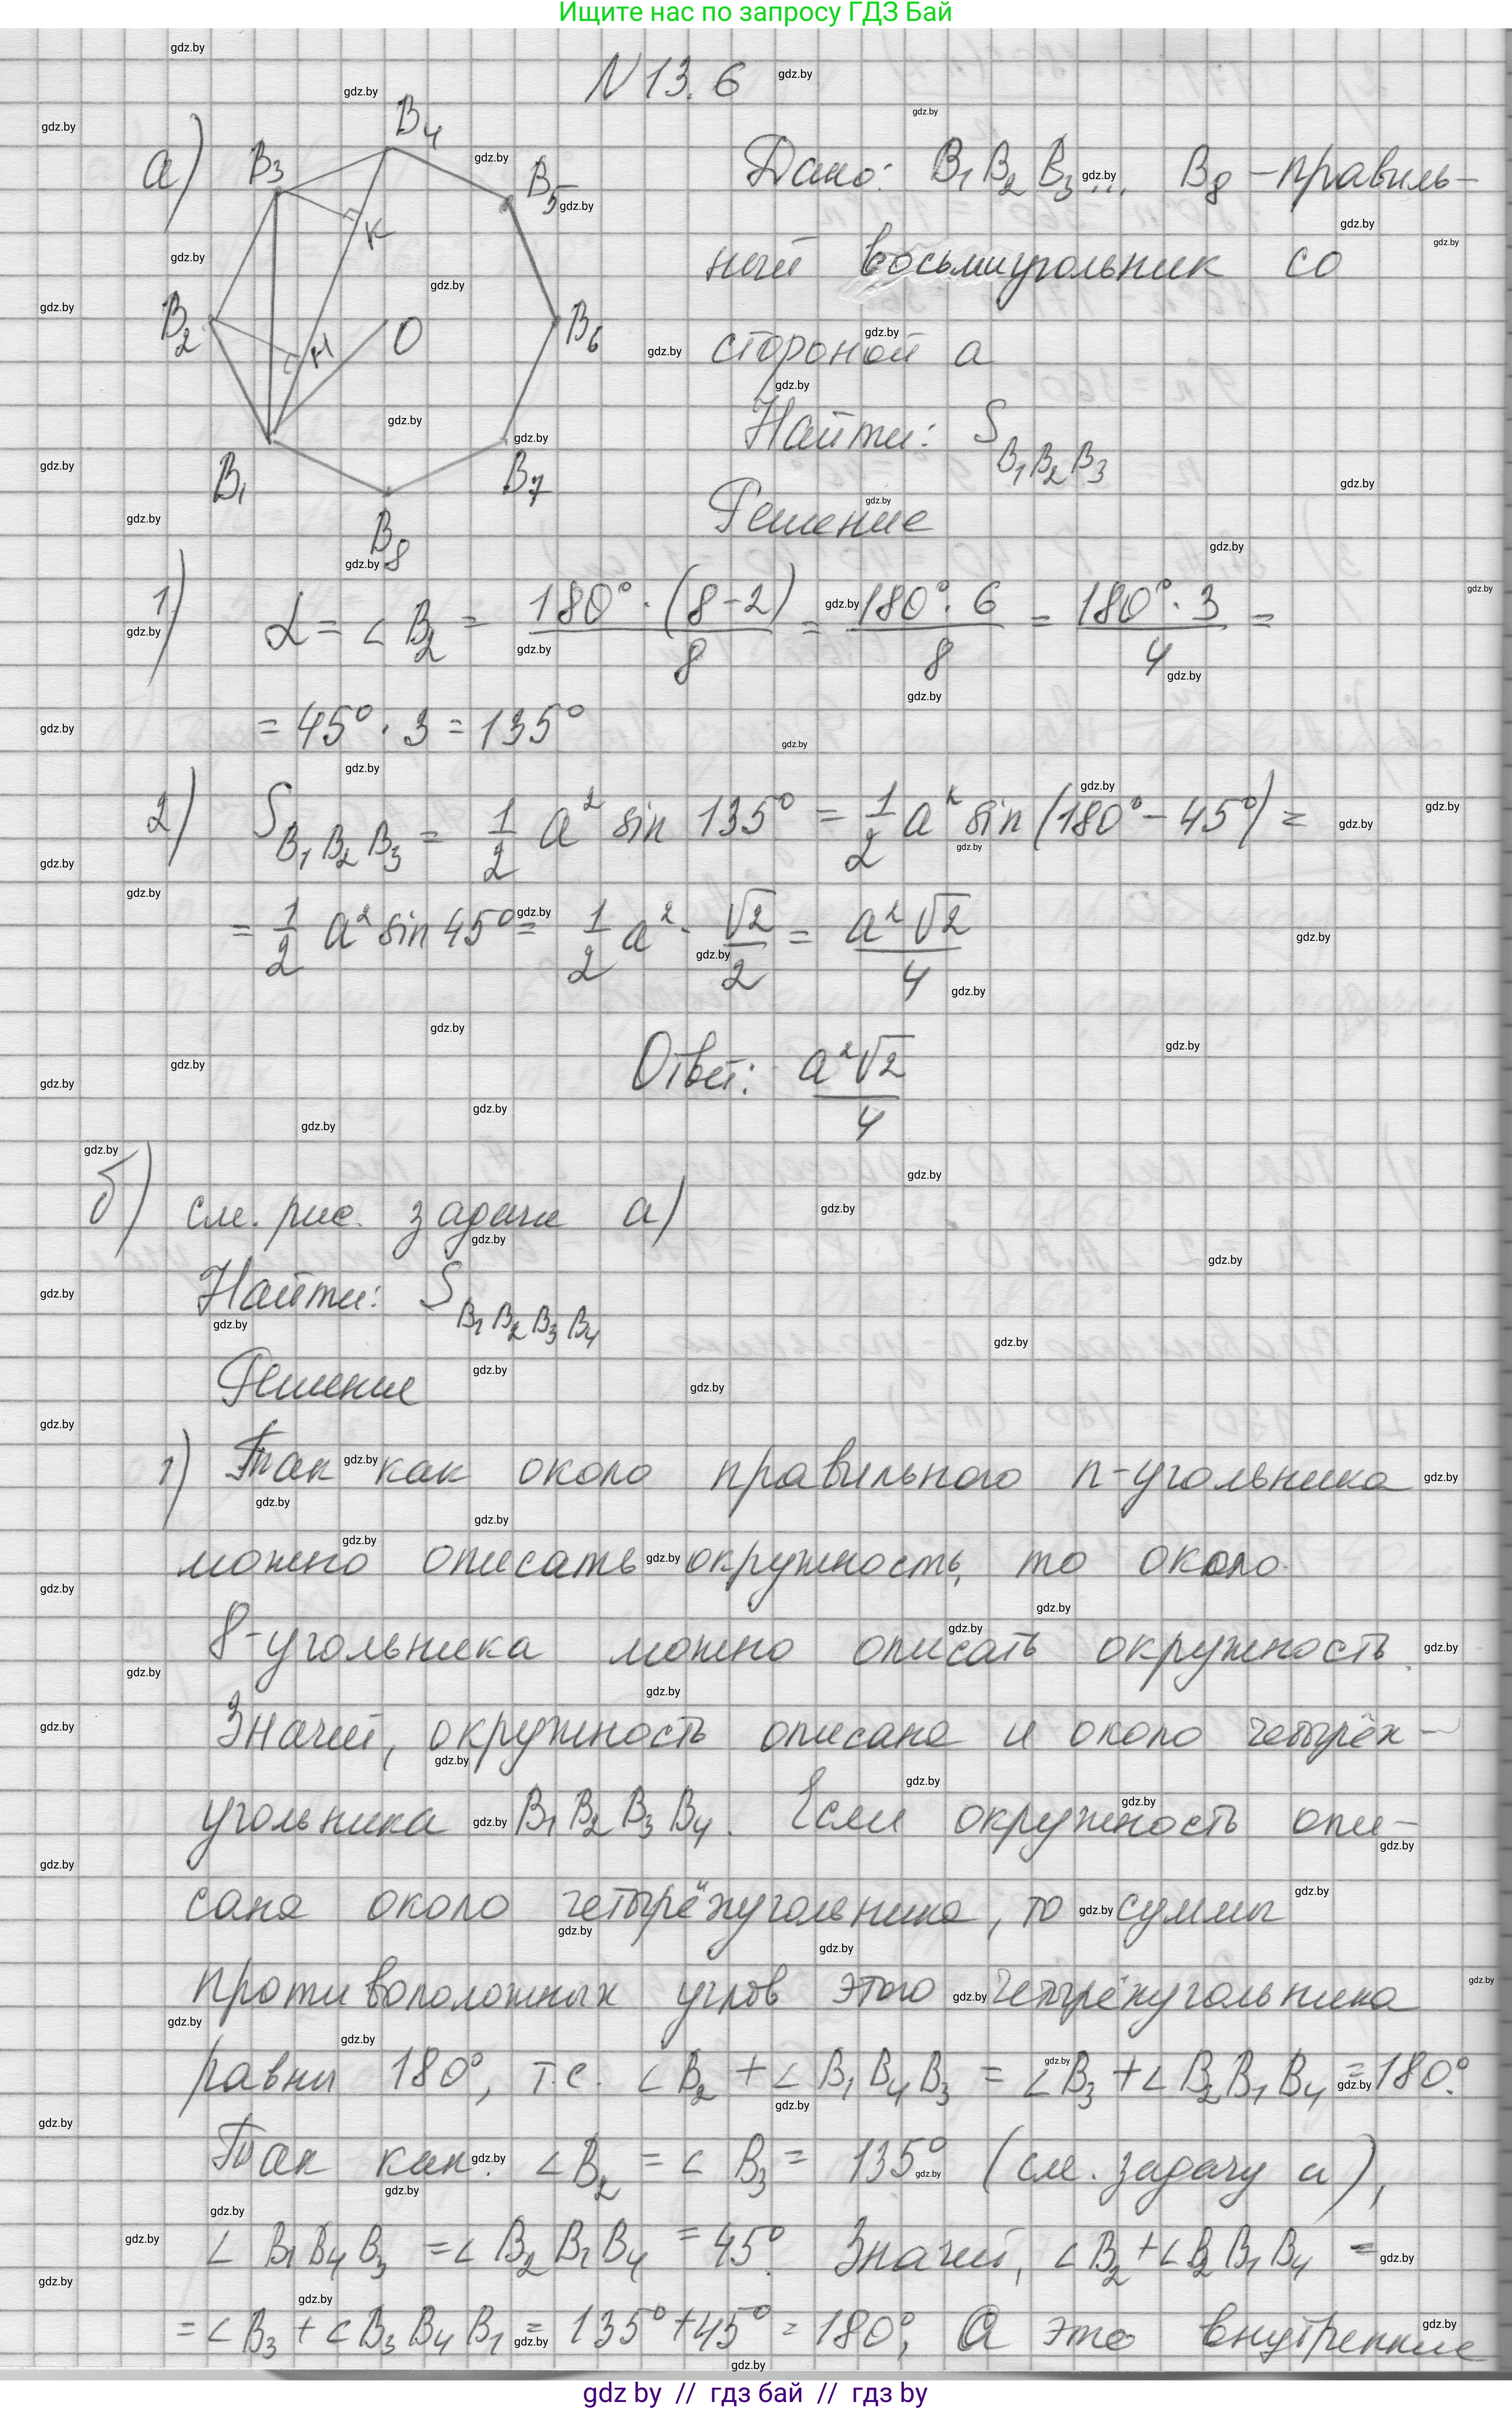 Ищите нас по запросу ГДЗ Бай
N 13.6
а)
B₃
B₄
B₅
K
B₂
H
O
B₆
B₁
B₇
B₈
Дано: B₁B₂B₃... B₈ - правиль-
ный восьмиугольник со
стороной a
Найти: S B₁B₂B₃
Решение
1) α = ∠B₂ = 180°·(8-2)/8 = 180°·6/8 = 180°·3/4 =
= 45°·3 = 135°
2) S B₁B₂B₃ = 1/2 a² sin 135° = 1/2 a² sin(180°-45°) =
= 1/2 a² sin 45° = 1/2 a² · √2/2 = a²√2/4
Ответ: a²√2/4
б) см. рис. задачи а)
Найти: S B₁B₂B₃B₄
Решение
1) Так как около правильного n-угольника
можно описать окружность, то около
8-угольника можно описать окружность.
Значит, окружность описана и около четырёх-
угольника B₁B₂B₃B₄. Если окружность опи-
сана около четырёхугольника, то суммы
противоположных углов этого четырёхугольника
равны 180°, т.е. ∠B₂ + ∠B₁B₄B₃ = ∠B₃ + ∠B₂B₁B₄ = 180°.
Так как ∠B₂ = ∠B₃ = 135° (см. задачу а),
∠B₁B₄B₃ = ∠B₂B₁B₄ = 45°. Значит, ∠B₂ + ∠B₂B₁B₄ =
= ∠B₃ + ∠B₃B₄B₁ = 135° + 45° = 180°, А это внутренние
gdz by // гдз бай // гдз by